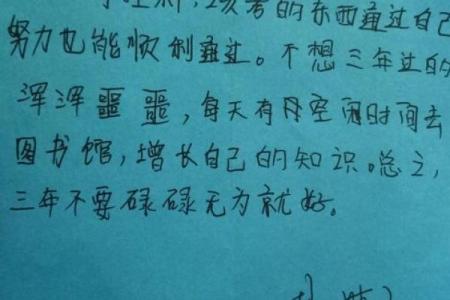 该考的东西通过自己
努力也能顺利通过。不想三年过的
浑浑噩噩，每天有用空闲时间去
图书馆，增长自己的知识。总之，
三年不要碌碌无为就好。